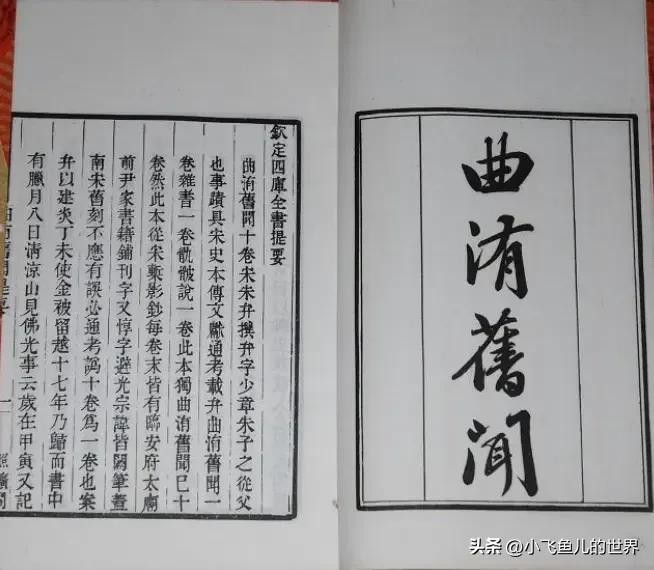 曲洧舊聞
欽定四庫全書提要
曲洧舊聞十卷宋朱弁撰弁字少章朱子之從父
也事蹟具宋史本傳文獻通考載弁曲洧舊聞一
卷雜書一卷骫骳說一卷此本獨曲洧舊聞已十
卷然此本從宋槧影鈔每卷末皆有臨安府太廟
前尹家書籍鋪刊字又惇字避光宗諱皆闕筆蓋
南宋舊刻不應有誤必通考譌十卷爲一卷也案
弁以建炎丁未使金被留越十七年乃歸而書中
有臘月八日清涼山見佛光事云歲在甲寅又記
头条 @小飞鱼儿的世界